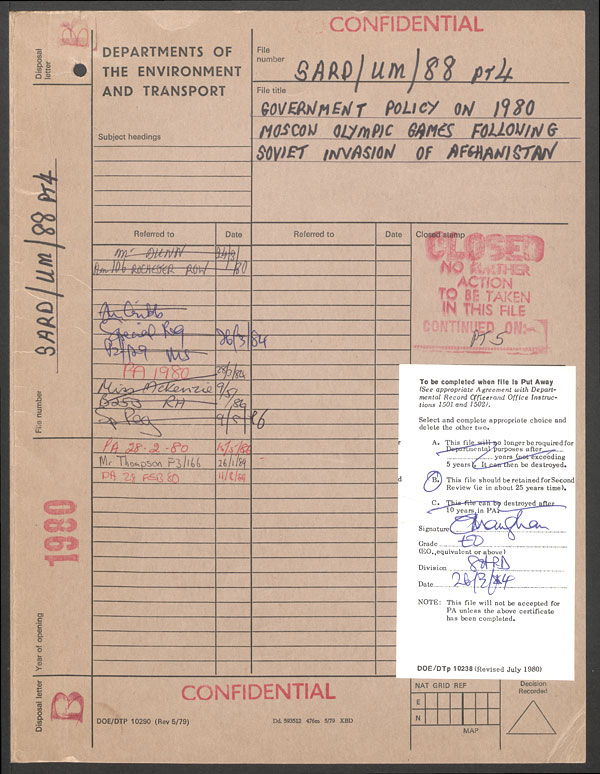 CONFIDENTIAL
Disposal letter
B
DEPARTMENTS OF
THE ENVIRONMENT
AND TRANSPORT
File number
SARD/UM/88 PT4
File title
GOVERNMENT POLICY ON 1980
MOSCOW OLYMPIC GAMES FOLLOWING
SOVIET INVASION OF AFGHANISTAN
Subject headings
File number
SARD/UM/88 PT4
Referred to
Date
Referred to
Date
Closed stamp
CLOSED
NO FURTHER
ACTION
TO BE TAKEN
IN THIS FILE
CONTINUED ON:-
PT 5
Mr DUNN
ROCHESTER ROW /80
Special Reg 26/3/84
PA 1980
Miss Ackenzie 9/5
B253 RH
Sp Reg 9/5/86
PA 28-2-80
Mr Thompson P3/166 26/1/89
PA 28 FEB 80
To be completed when file is Put Away
(See appropriate Agreement with Depart-
mental Record Officer and Office Instruc-
tions 1501 and 1502).
Select and complete appropriate choice and
delete the other two.
A. This file will no longer be required for
Departmental purposes after
years (not exceeding
5 years). It can then be destroyed.
B. This file should be retained for Second
Review (ie in about 25 years time).
C. This file can be destroyed after
10 years in PA.
Signature
Grade EO
(EO., equivalent or above)
Division SARD
Date 26/3/84
NOTE: This file will not be accepted for
PA unless the above certificate
has been completed.
DOE/DTp 10238 (Revised July 1980)
1980
Year of opening
Disposal letter
B
CONFIDENTIAL
DOE/DTP 10290 (Rev 5/79)
Dd. 593512 476m 5/79 XBD
NAT GRID REF
E
N
MAP
Decision
Recorded